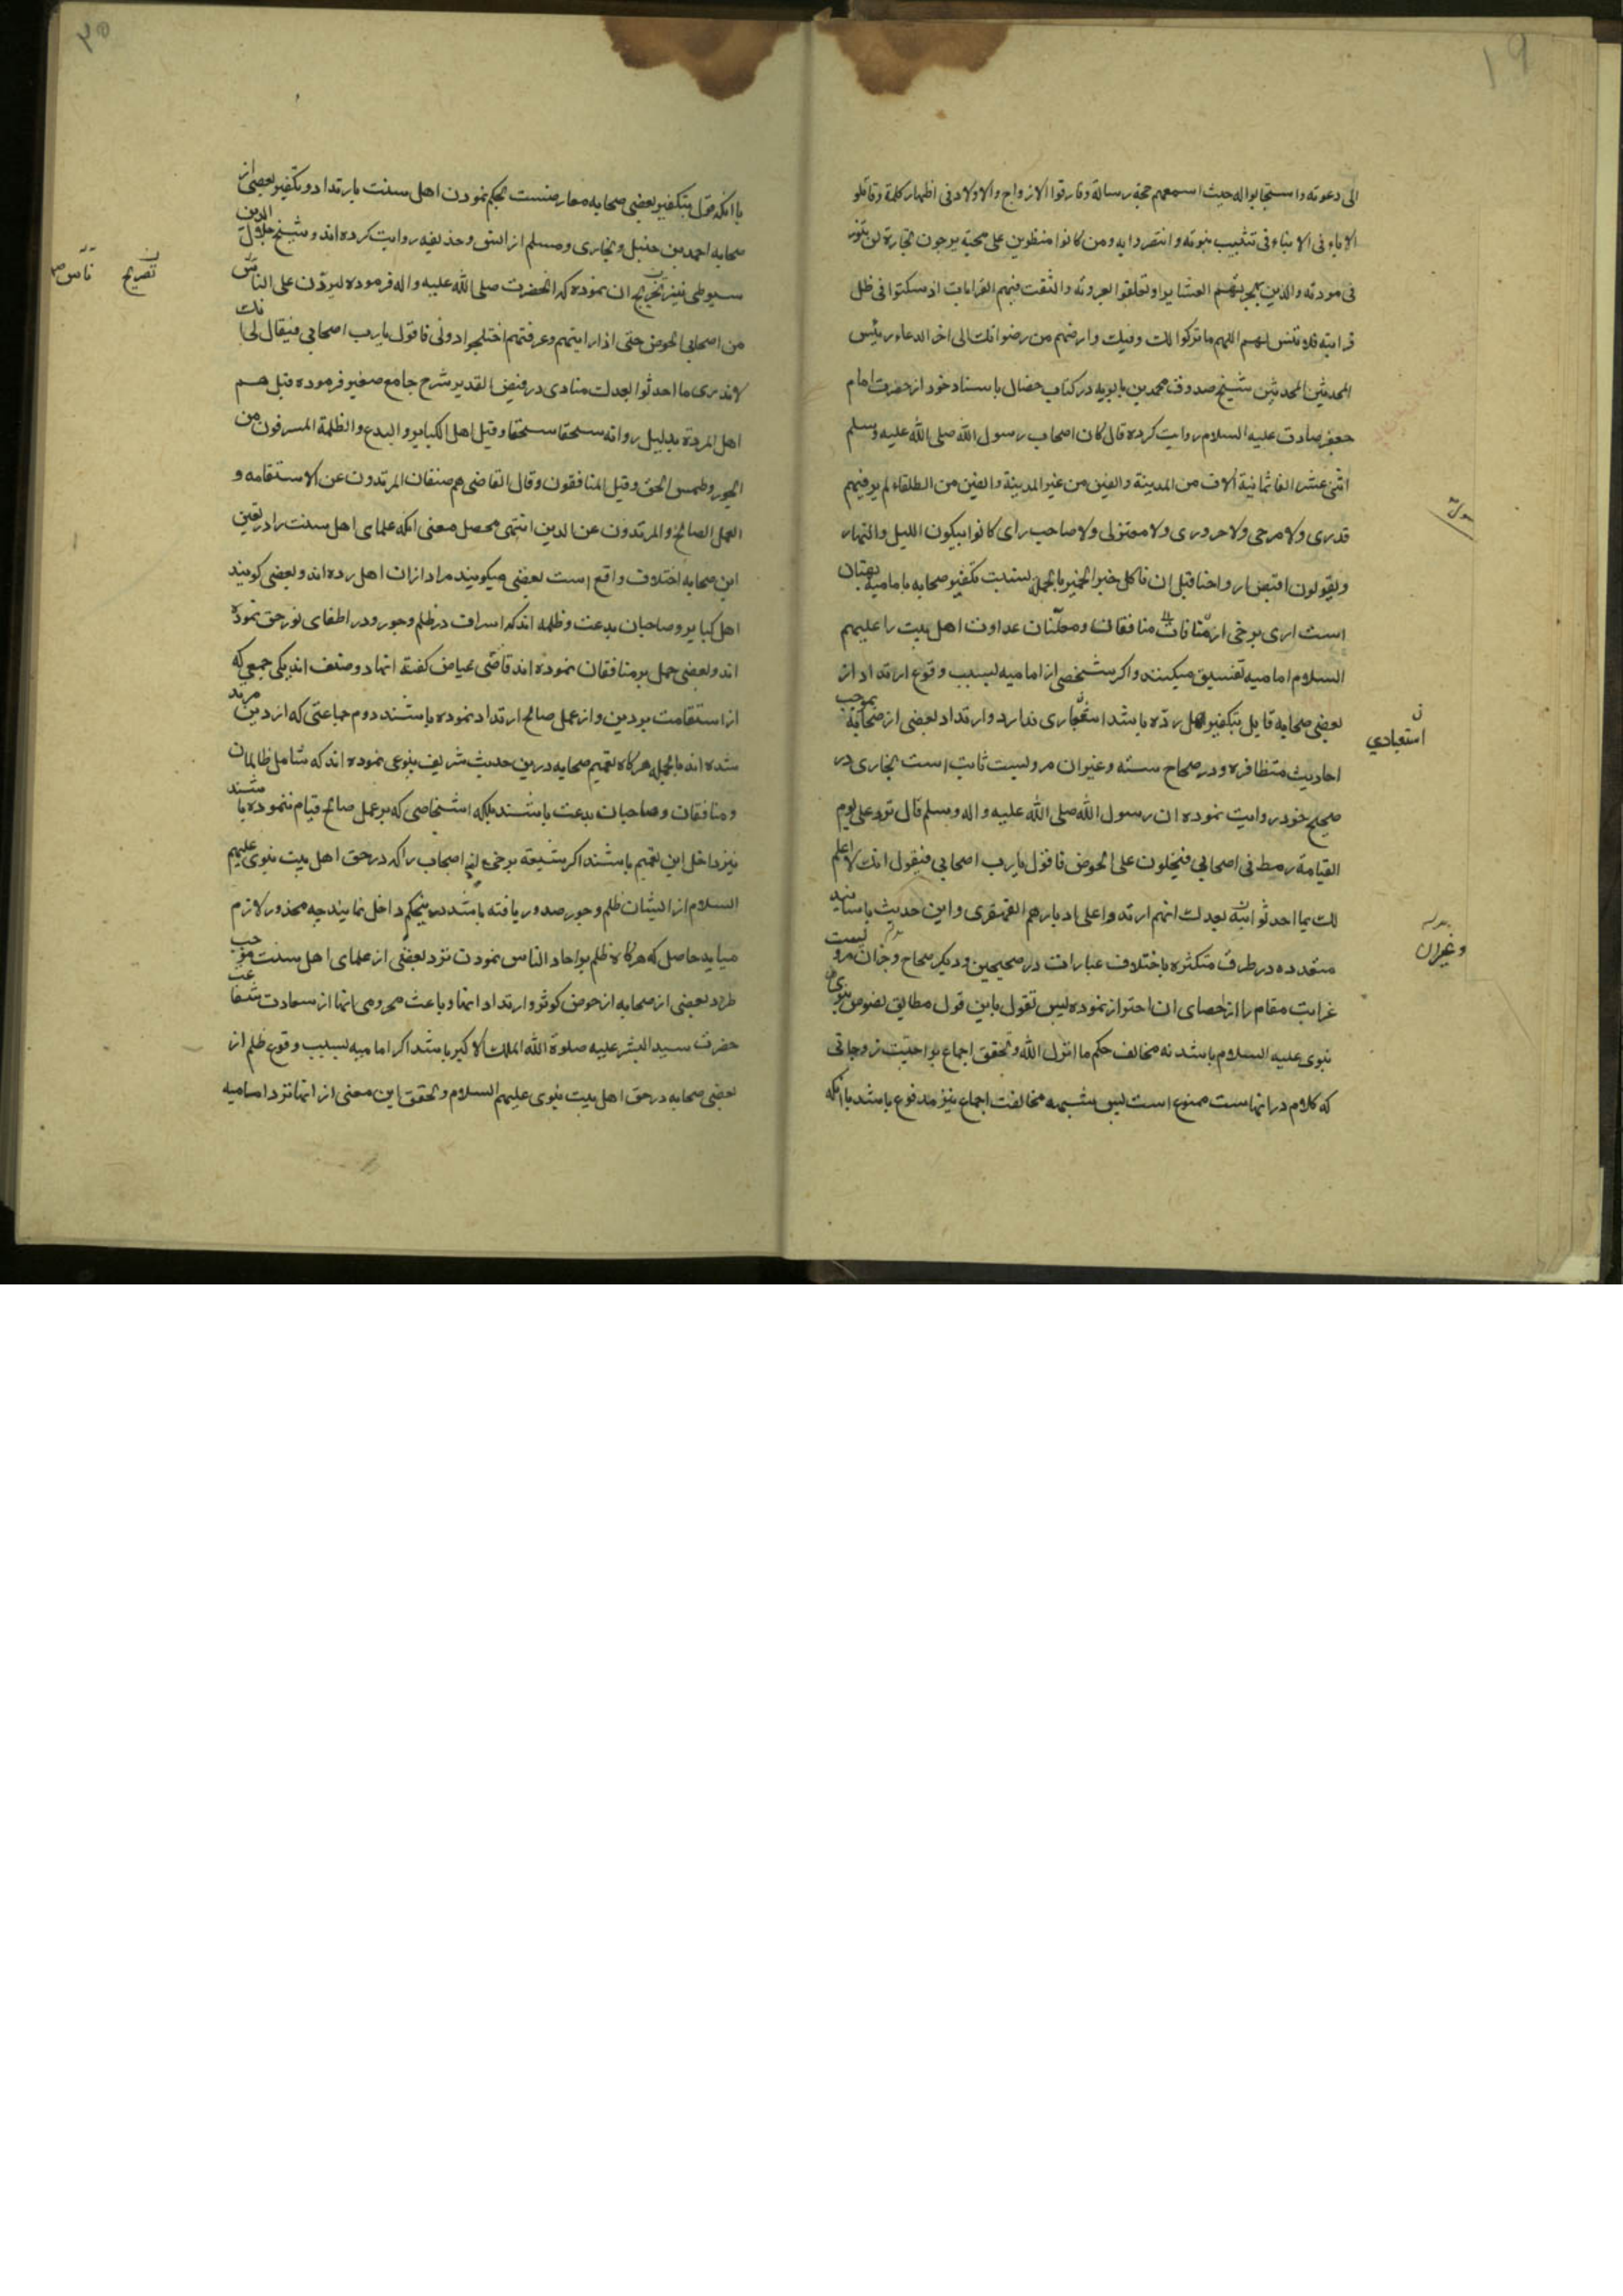 ۱۹
الی دعوته واستجابوا له حیث اسمعهم حجة رسالة وفارقوا الازواج والاولاد فی اظهار کلمة وقاتلو
الاباء فی الابناء فی تثبیت نبوته وانتصروا به ومن کانوا منطوین علی محبة یرجون تجارة لن تبور
فی مودته والذین هجرتهم العشایر اوتعلقوا بعروته وانتفت منهم القرابات اذ سکنوا فی ظل
قرابته فلا تنس لهم اللهم ما ترکوا لک وفیک وارضهم من رضوانک الی اخر الدعاء رئیس
المحدثین شیخ صدوق محمد بن بابویه در کتاب خصال باسناد خود از حضرت امام
جعفر صادق علیه السلام روایت کرده قال کان اصحاب رسول الله صلی الله علیه وسلم
اثنی عشر الفا ثمانیة الاف من المدینة والفین من غیر المدینة والفین من الطلقاء لم یر فیهم
قدری ولا مرجی ولا حروری ولا معتزلی ولا صاحب رای کانوا یبکون اللیل والنهار
ویقولون اقبض ارواحنا قبل ان ناکل خبز الخمیر بالجمله نسبت تکفیر صحابه بامامیه بهتان
است اری برخی از منافقان ومعلنان عداوت اهل بیت را علیهم
السلام امامیه تفسیق میکنند واکر شخصی از امامیه بسبب وقوع ارتداد از
بعضی صحابه قایل بتکفیر اهل رده باشد استبعادی ندارد وارتداد بعضی از صحابه بموجب
استبعادی
احادیث متظافره ودر صحاح سته وغیر ان مرویست ثابت است بخاری در
صحیح خود روایت نموده ان رسول الله صلی الله علیه واله وسلم قال ترد علی یوم
القیامة رهط فی اصحابی فیخلون علی الحوض فاقول یارب اصحابی فیقول انک لا علم
لک بما احدثوا بعدک انهم ارتدوا علی ادبارهم القهقری واین حدیث باسانید
متعدده در طرق متکثره باختلاف عبارات در صحیحین ودیکر صحاح وجز ان مرویست
وغیران
غرابت مقام را از احصای ان احتراز نموده پس تقول باین قول مطابق نصوص نبوی
نبوی علیه السلام باشد نه مخالف حکم ما انزل الله وتحقق اجماع بر احقیت زوجاتی
که کلام در انهاست ممنوع است پس شبهه مخالفت اجماع نیز مدفوع باشد باانکه
۲۰
باانکه قول بتکفیر بعضی صحابه معارضست بحکم نمودن اهل سنت بارتداد وتکفیر بعضی از
صحابه احمد بن حنبل وبخاری ومسلم از انس وحذیفه روایت کرده اند وشیخ جلال الدین
سیوطی نیز تخریج ان نموده که انحضرت صلی الله علیه واله فرموده لیردن علی الناس
تصریح ناس
من اصحابی الحوض حتی اذا رایتهم وعرفتهم اختلجوا دونی فاقول یارب اصحابی فیقال لی انک
لا تدری ما احدثوا بعدک منادی در فیض القدیر شرح جامع صغیر فرموده قیل هم
اهل الردة بدلیل روایة سحقا سحقا وقیل اهل الکبایر والبدع والظلمة المسرفون من
الجور وطمس الحق وقیل المنافقون وقال القاضی هم صنفان المرتدون عن الاستقامه و
العمل الصالح والمرتدون عن الدین انتهی محصل معنی انکه علمای اهل سنت را در تعین
این صحابه اختلاف واقع است بعضی میکویند مراد از ان اهل رده اند وبعضی کویند
اهل کبایر وصاحبان بدعت وظلمه اند که اسراف در ظلم وجور ودر اطفای نور حق نموده
اند وبعضی حمل بر منافقان نموده اند قاضی عیاض کفته انها دو صنف اند یکی جمعی که
از استقامت بر دین واز عمل صالح ارتداد نموده باشند دوم جماعتی که از دین مرتد
شده اند بالجمله هر کاه تعمیم صحابه درین حدیث شریف بنوعی نموده اند که شامل ظالمان
ومنافقان وصاحبان بدعت باشند بلکه اشخاصی که بر عمل صالح قیام ننموده باشند
نیز داخل این تعمیم باشند اکر شیعه برخی از اصحاب را که در حق اهل بیت نبوی علیهم
السلام از ایشان ظلم وجور صدور یافته باشد درینحکم داخل نمایند چه محذور لازم
میاید حاصل که هر کاه ظلم بر احاد الناس نمودن نزد بعضی از علمای اهل سنت موجب
طرد بعضی از صحابه از حوض کوثر وارتداد انها وباعث محرومی انها از سعادت شفاعت
حضرت سید البشر علیه صلوة الله الملک الاکبر باشد اکر امامیه بسبب وقوع ظلم از
بعضی صحابه در حق اهل بیت نبوی علیهم السلام وتحقق این معنی از انها نزد امامیه